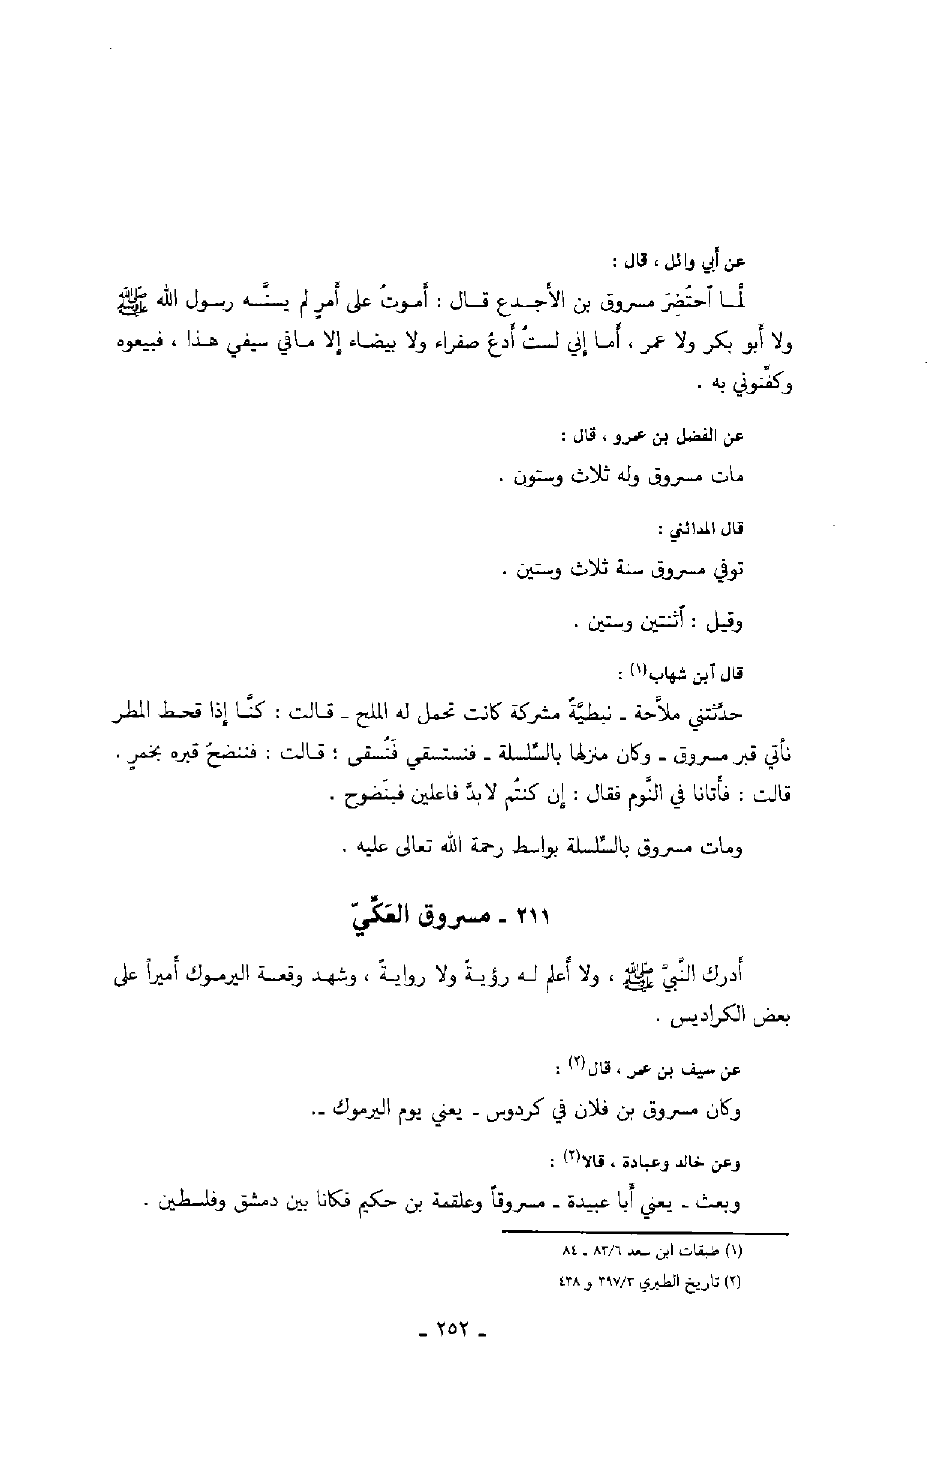 عن أبي وائل ، قال :
لمـا ٱحتُضِرَ مسروق بن الأجـدع قـال : أموتُ على أمرٍ لم يسنَّـه رسول الله ﷺ
ولا أبو بكر ولا عمر ، أمـا إني لستُ أدعُ صفراء ولا بيضاء إلا مافي سيفي هـذا ، فبيعوه
وكفّنوني به .
عن الفضل بن عمرو ، قال :
مات مسروق وله ثلاث وستون .
قال المدائني :
توفي مسروق سنة ثلاث وستين .
وقيل : ٱثنتين وستين .
قال ٱبن شهاب(١) :
حدّثتني ملاَّحة ـ نبطيَّةٌ مشركة كانت تحمل له الملح ـ قـالت : كنَّـا إذا قحـط المطر
نأتي قبر مسروق ـ وكان منزلها بالسِّلسلة ـ فنستسقي فنُسقى ؛ قـالت : فننضحُ قبره بخمرٍ .
قالت : فأتانا في النَّوم فقال : إن كنتُم لابدَّ فاعلين فبنَضوح .
ومات مسروق بالسِّلسلة بواسط رحمة الله تعالى عليه .
٢١١ ـ مسروق العَكِّيّ
أدرك النَّبيَّ ﷺ ، ولا أعلم لـه رؤيـةً ولا روايـةً ، وشهد وقعـة اليرموك أميراً على
بعض الكراديس .
عن سيف بن عمر ، قال(٢) :
وكان مسروق بن فلان في كردوس ـ يعني يوم اليرموك ـ.
وعن خالد وعبادة ، قالا(٢) :
وبعث ـ يعني أبا عبيدة ـ مسروقاً وعلقمة بن حكيم فكانا بين دمشق وفلسطين .
(١) طبقات ابن سعد ٨٣/٦ ـ ٨٤
(٢) تاريخ الطبري ٣٩٧/٣ و ٤٣٨
ـ ٢٥٢ ـ